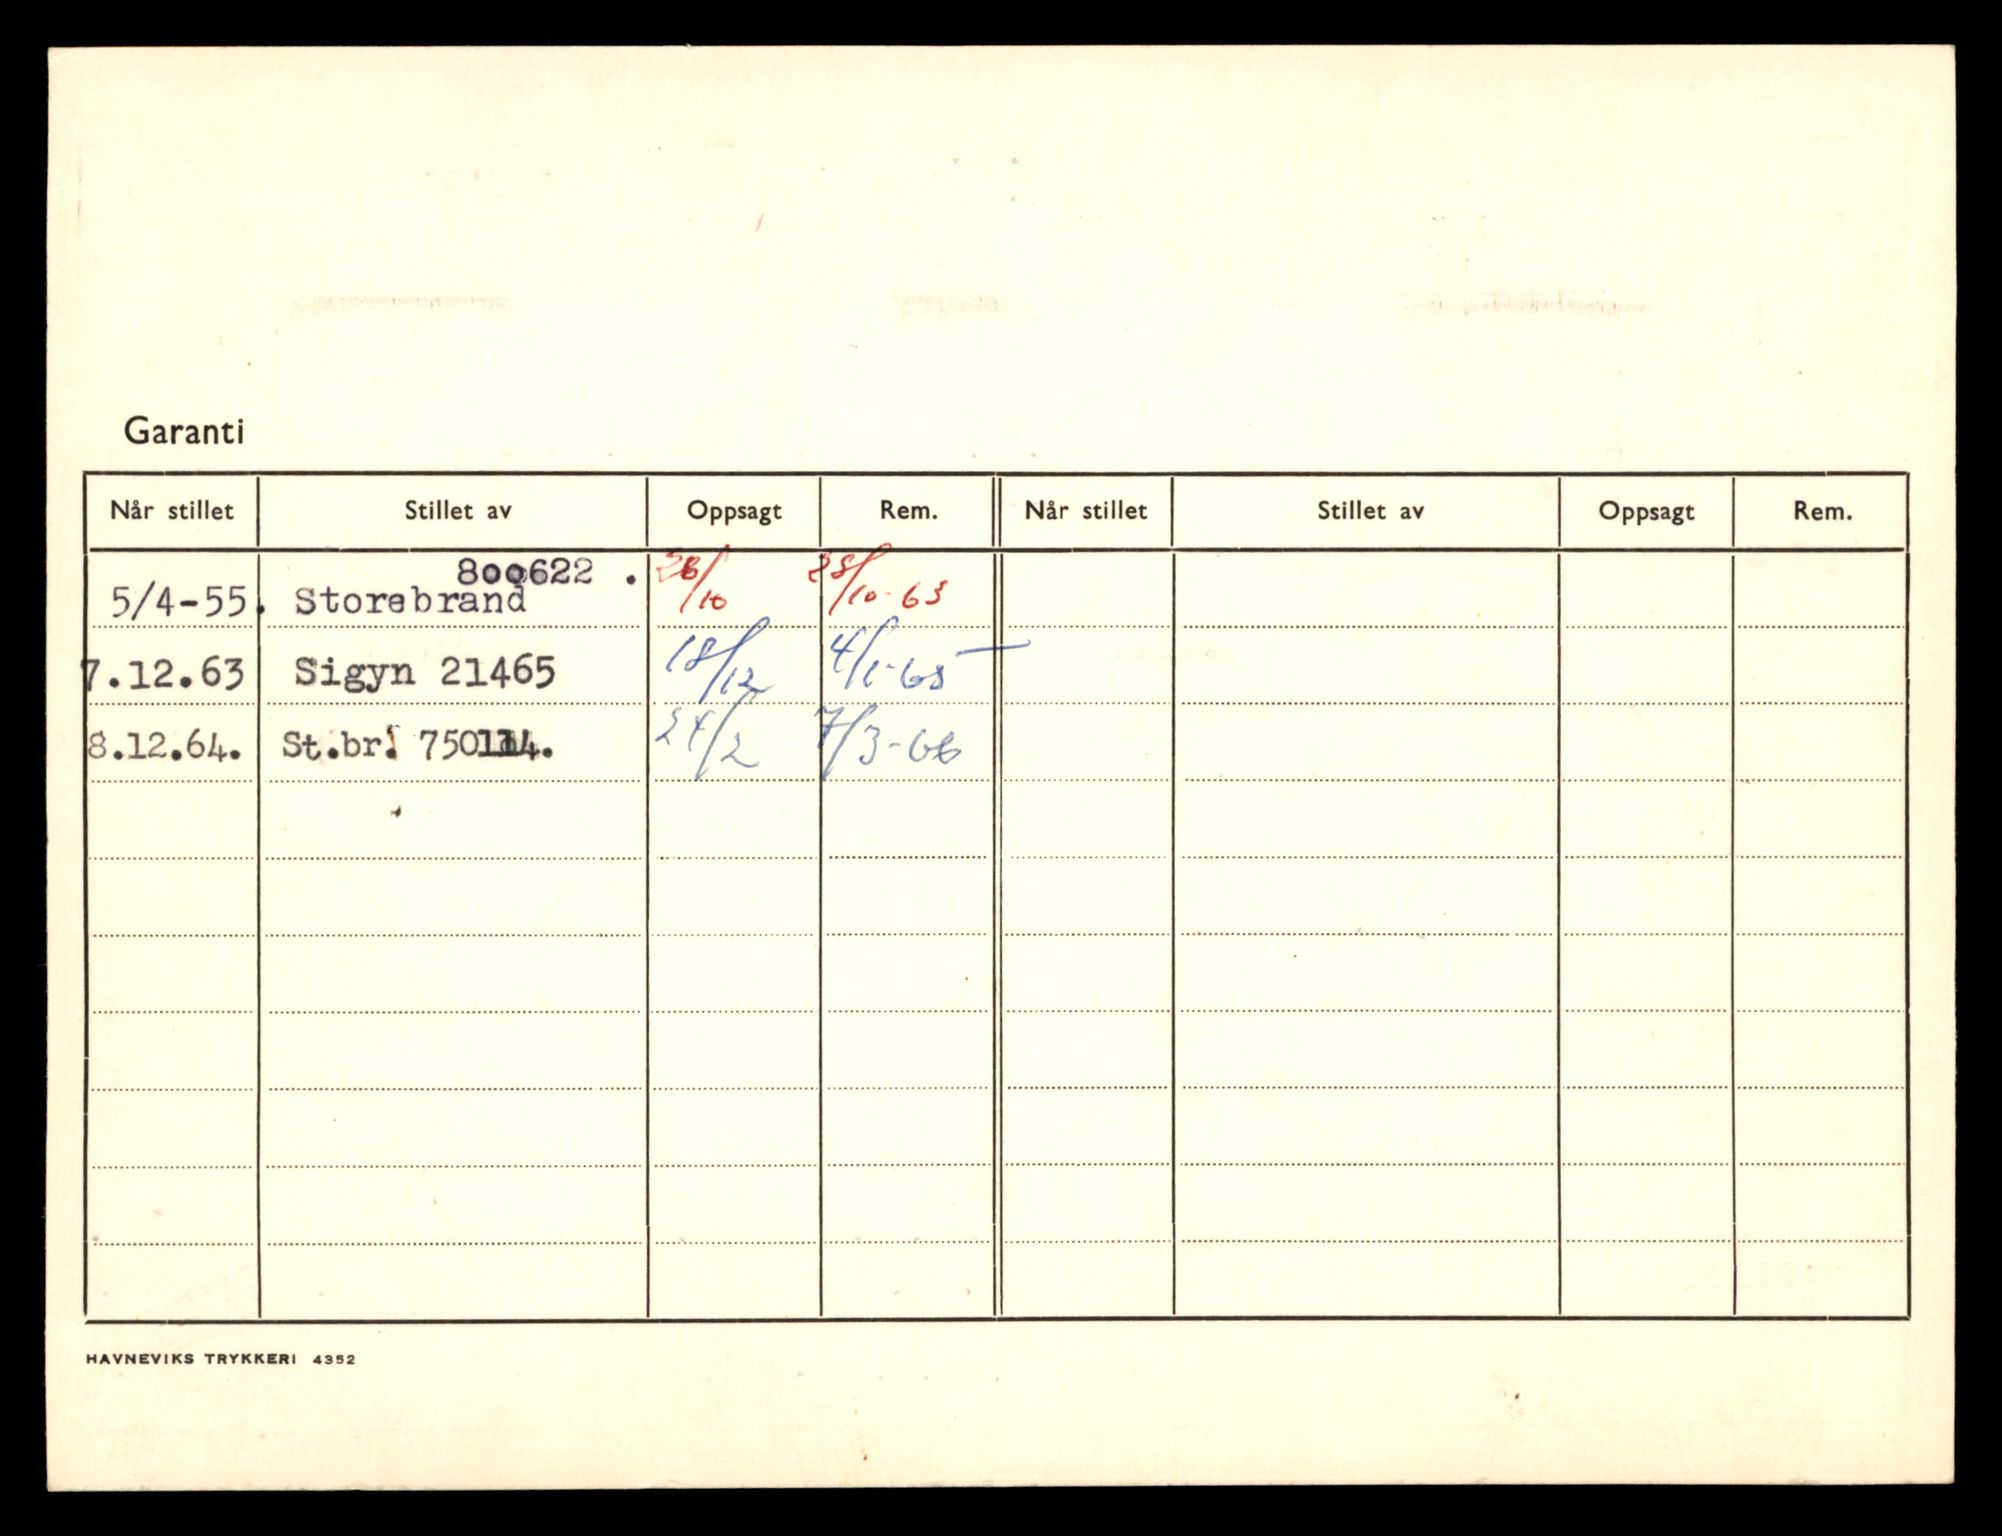 Garanti
Når stillet Stillet av Oppsagt Rem. Når stillet Stillet av Oppsagt Rem.
800622 .
5/4-55. Storebrand 26/10 28/10-63
7.12.63 Sigyn 21465 18/12 4/1-65
8.12.64. St.br. 750114. 24/2 7/3-66
HAVNEVIKS TRYKKERI 4352